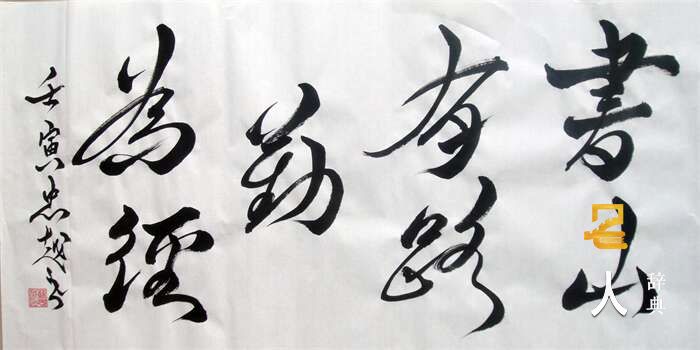 書山
有路
勤
為徑
壬寅忠越書
名人
辞典